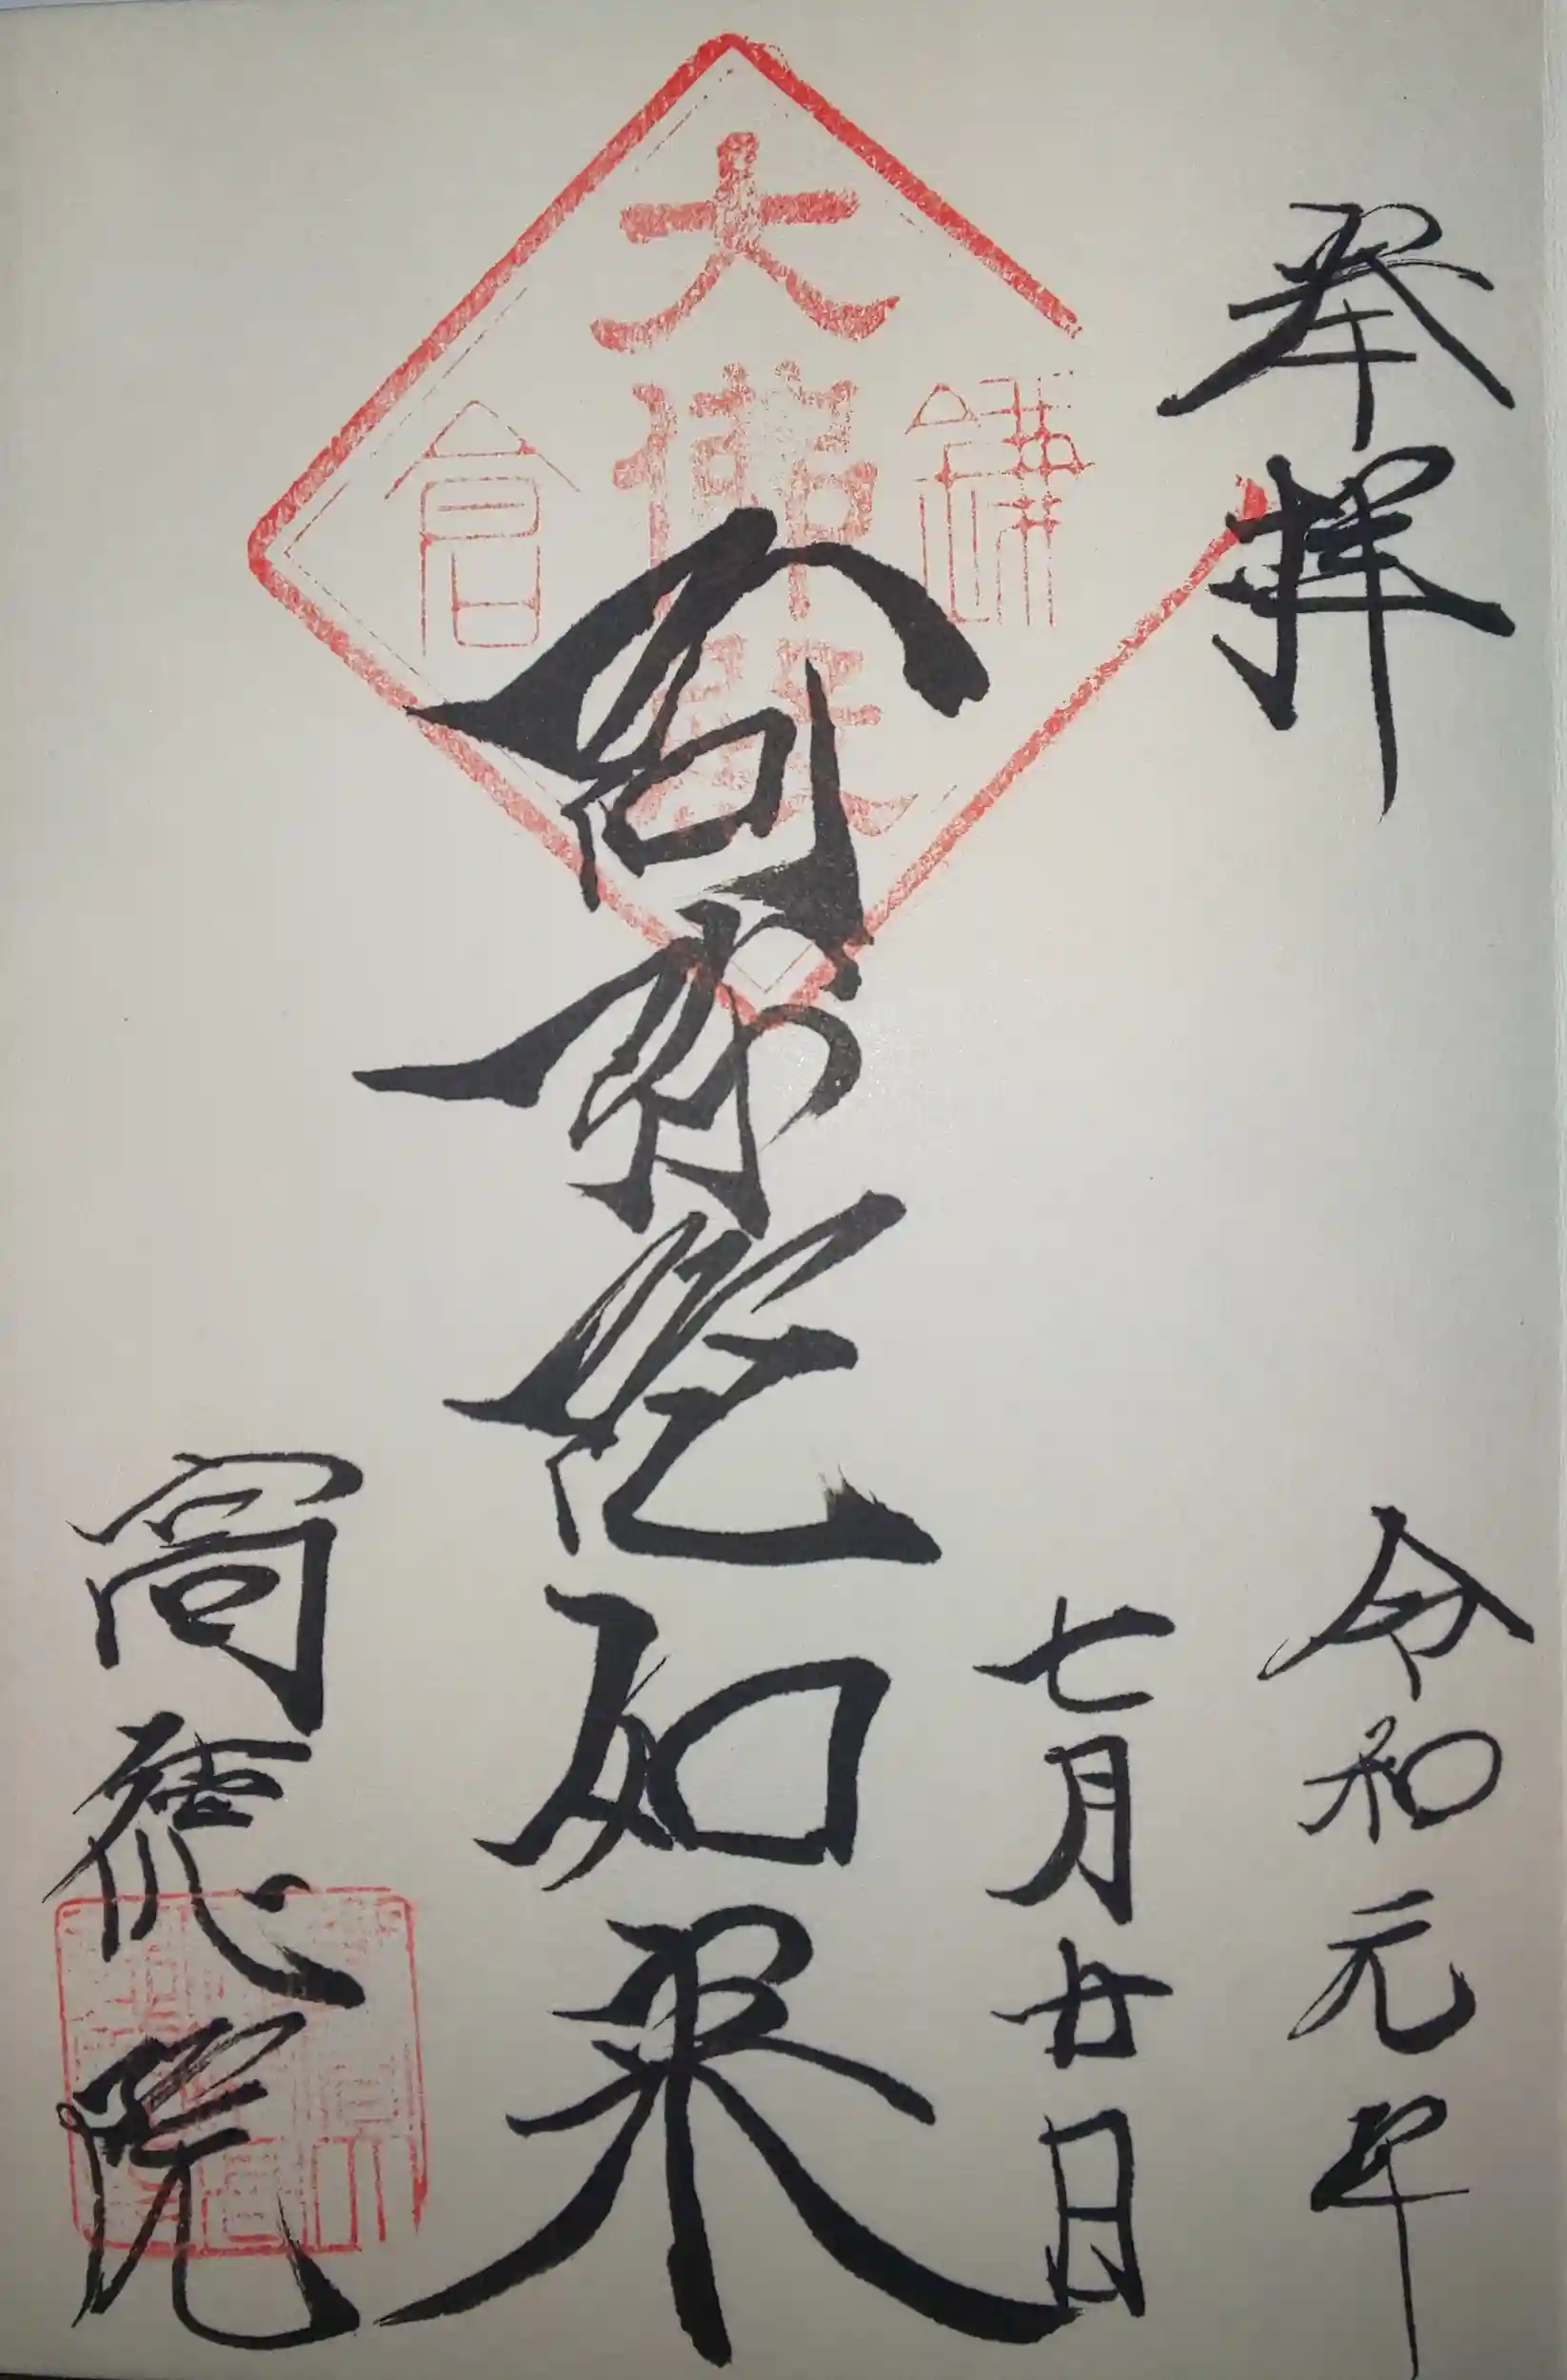 奉拝
令和元年
七月廿日
大佛殿
鎌倉
阿弥陀如来
高徳院